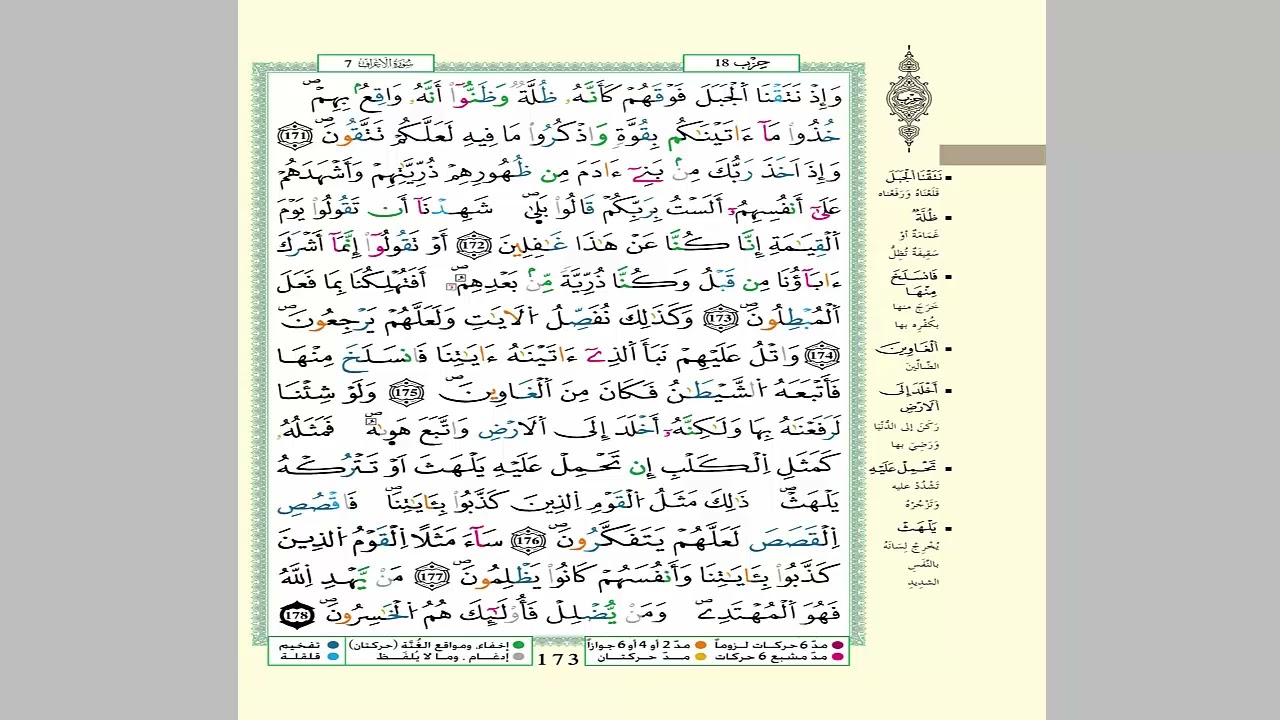 سُورَةُ الاَعْرَافِ 7
حِزْب 18
وَإِذْ نَتَقْنَا اَلْجَبَلَ فَوْقَهُمْ كَأَنَّهُۥ ظُلَّةٞ وَظَنُّوٓاْ أَنَّهُۥ وَاقِعُۢ بِهِمْۖ
خُذُواْ مَآ ءَاتَيْنَٰكُم بِقُوَّةٖ وَاذْكُرُواْ مَا فِيهِ لَعَلَّكُمْ تَتَّقُونَۖ 171
وَإِذَ اَخَذَ رَبُّكَ مِنۢ بَنِےٓ ءَادَمَ مِن ظُهُورِهِمْ ذُرِّيَّٰتِهِمْ وَأَشْهَدَهُمْ
عَلَىٰٓ أَنفُسِهِمُۥٓ أَلَسْتُ بِرَبِّكُمْ قَالُواْ بَلَىٰۖ شَهِدْنَآ أَن تَقُولُواْ يَوْمَ
اَلْقِيَٰمَةِ إِنَّا كُنَّا عَنْ هَٰذَا غَٰفِلِينَ 172 أَوْ تَقُولُوٓاْ إِنَّمَآ أَشْرَكَ
ءَابَآؤُنَا مِن قَبْلُ وَكُنَّا ذُرِّيَّةٗ مِّنۢ بَعْدِهِمُۥٓۖ أَفَتُهْلِكُنَا بِمَا فَعَلَ
اَلْمُبْطِلُونَۖ 173 وَكَذَٰلِكَ نُفَصِّلُ اُلَايَٰتِ وَلَعَلَّهُمْ يَرْجِعُونَۖ
174 وَاتْلُ عَلَيْهِمْ نَبَأَ اَلذِےٓ ءَاتَيْنَٰهُ ءَايَٰتِنَا فَانسَلَخَ مِنْهَا
فَأَتْبَعَهُ اُلشَّيْطَٰنُ فَكَانَ مِنَ اَلْغَاوِينَۖ 175 وَلَوْ شِئْنَا
لَرَفَعْنَٰهُ بِهَا وَلَٰكِنَّهُۥٓ أَخْلَدَ إِلَى اَلَارْضِ وَاتَّبَعَ هَوَىٰهُۖ فَمَثَلُهُۥ
كَمَثَلِ اِلْكَلْبِ إِن تَحْمِلْ عَلَيْهِ يَلْهَثَ اَوْ تَتْرُكْهُ
يَلْهَثۖ ذَّٰلِكَ مَثَلُ اُلْقَوْمِ اِلذِينَ كَذَّبُواْ بِـَٔايَٰتِنَاۖ فَاقْصُصِ
اِلْقَصَصَ لَعَلَّهُمْ يَتَفَكَّرُونَۖ 176 سَآءَ مَثَلًا اِلْقَوْمُ اُلذِينَ
كَذَّبُواْ بِـَٔايَٰتِنَا وَأَنفُسَهُمْ كَانُواْ يَظْلِمُونَۖ 177 مَنْ يَّهْدِ اِللَّهُ
فَهُوَ اَلْمُهْتَدِےۖ وَمَنْ يُّضْلِلْ فَأُوْلَٰٓئِكَ هُمُ اُلْخَٰسِرُونَۖ 178
حِزْب
نَتَقْنَا الْجَبَلَ
قَلَعْنَاهُ وَرَفَعْنَاه
ظُلَّةٌ
غَمَامَةٌ أوْ
سَقِيفَةٌ تُظِلُّ
فَانسَلَخَ
مِنْهَا
خَرَجَ منها
بِكُفْرِه بها
اَلْغَاوِينَ
الضَّالِّينَ
أَخْلَدَ إِلَى
اَلَارْضِ
رَكَنَ إلى الدُّنْيَا
وَرَضِيَ بها
تَحْمِلْ عَلَيْهِ
تَشْدُدْ عليه
وَتَزْجُرْهُ
يَلْهَثْ
يُخْرِجْ لِسَانَهُ
بالنَّفَسِ
الشديدِ
مدّ 6 حركات لـزومـاً
مدّ 2 أو 4 أو 6 جوازاً
إخفاء، ومواقع الغُنَّة (حركتان)
تفخيم
مدّ مشبع 6 حركات
مـدّ حـركـتـان
إدغـام ، ومـا لا يُلفَـظ
قلقلة
173